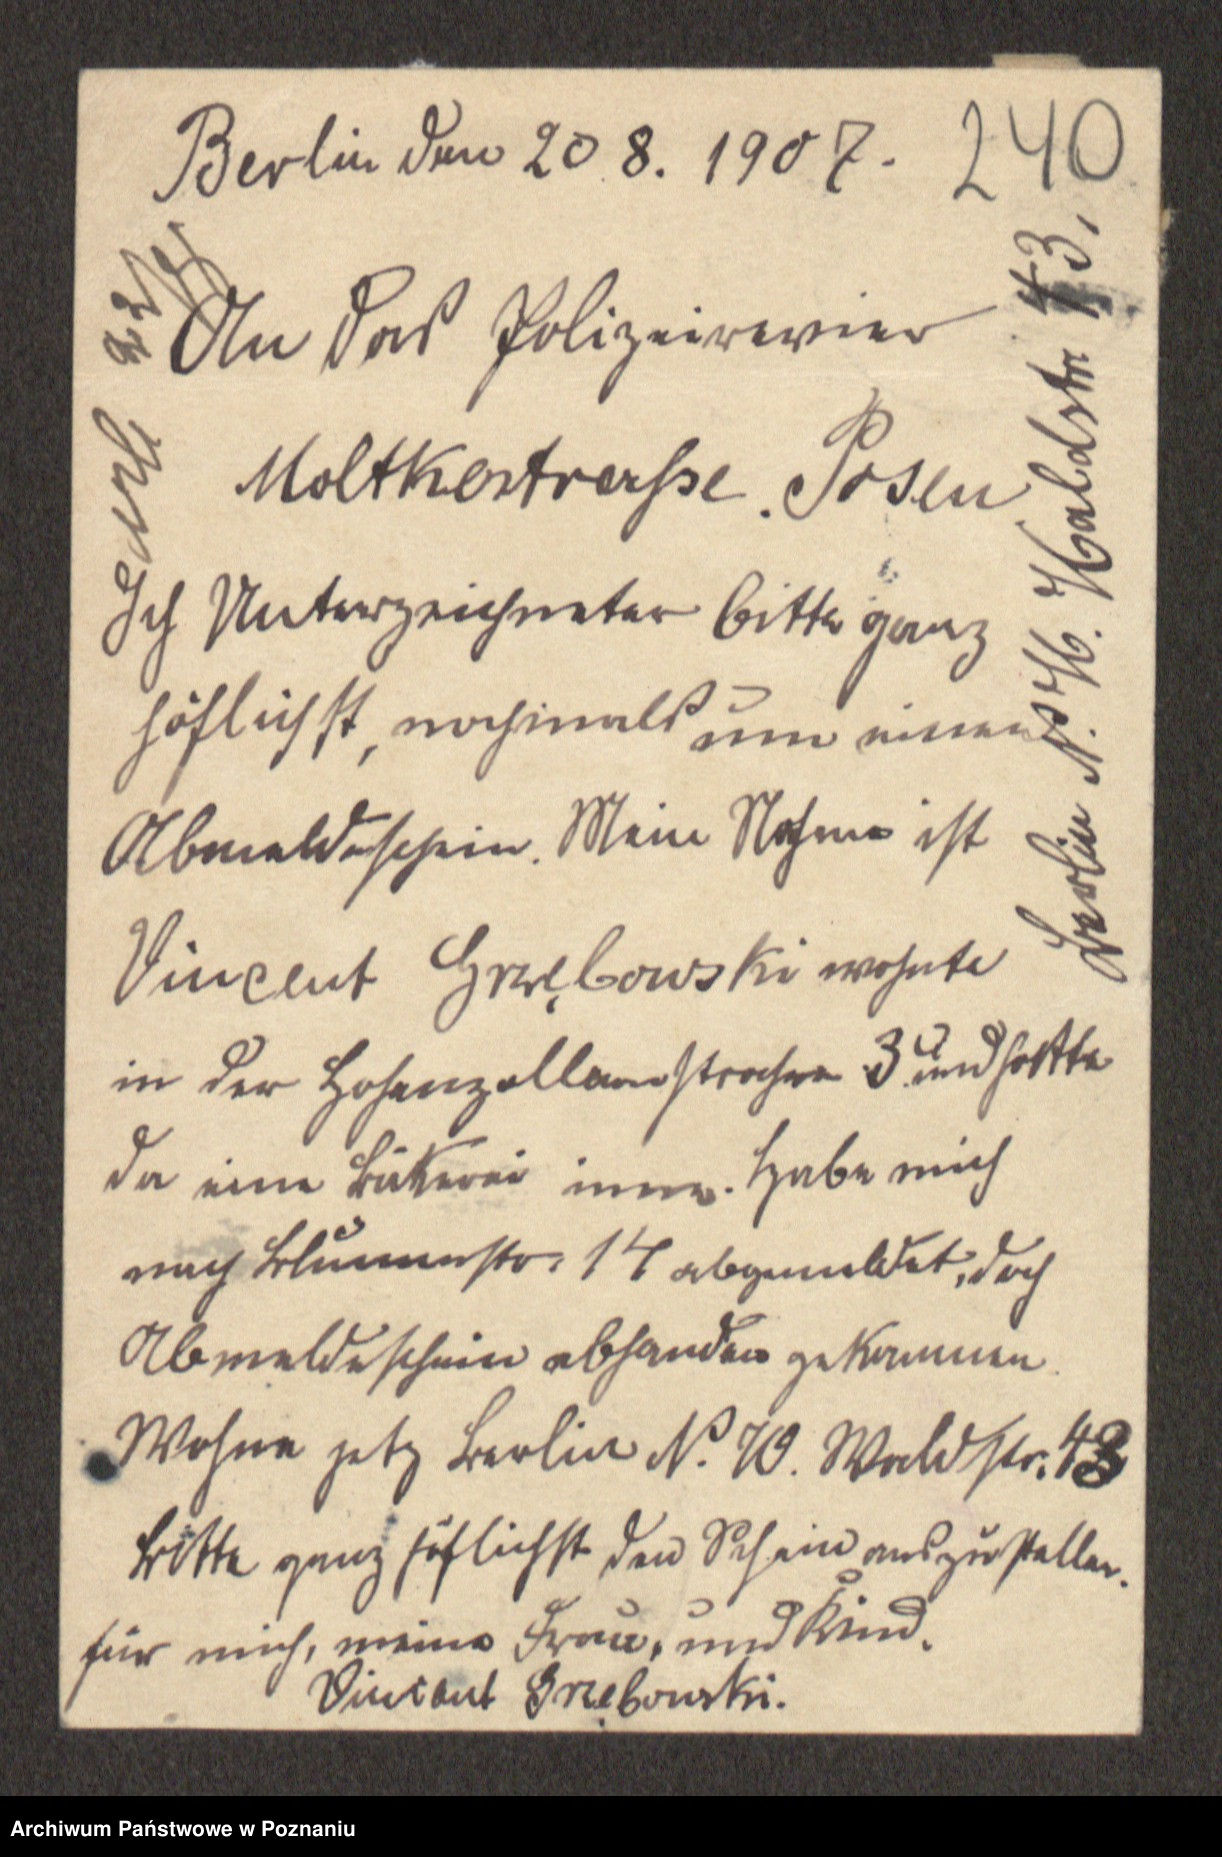 Berlin den 20 8. 1907.
240
An das Polizeirevier
Moltkestraße. Posen
Ich Unterzeichneter bitte ganz
höflichst, nochmals um einen
Abmeldeschein. Mein Nahme ist
Vincent Grzębowski wohnte
in der Hohenzollernstrahse 3 und hattte
da eine Bäkerei inne. Habe mich
nach Blumenstr. 14 abgemeldet, doch
Abmeldeschein abhanden gekommen
Wohne jetz Berlin N. W. Waldstr. 43
Bittte ganz höflichst den Schein auszustellen.
für mich, meine Frau, und Kind.
Vincent Grzębowski.
Berlin N. W. Waldstr 43,
Archiwum Państwowe w Poznaniu